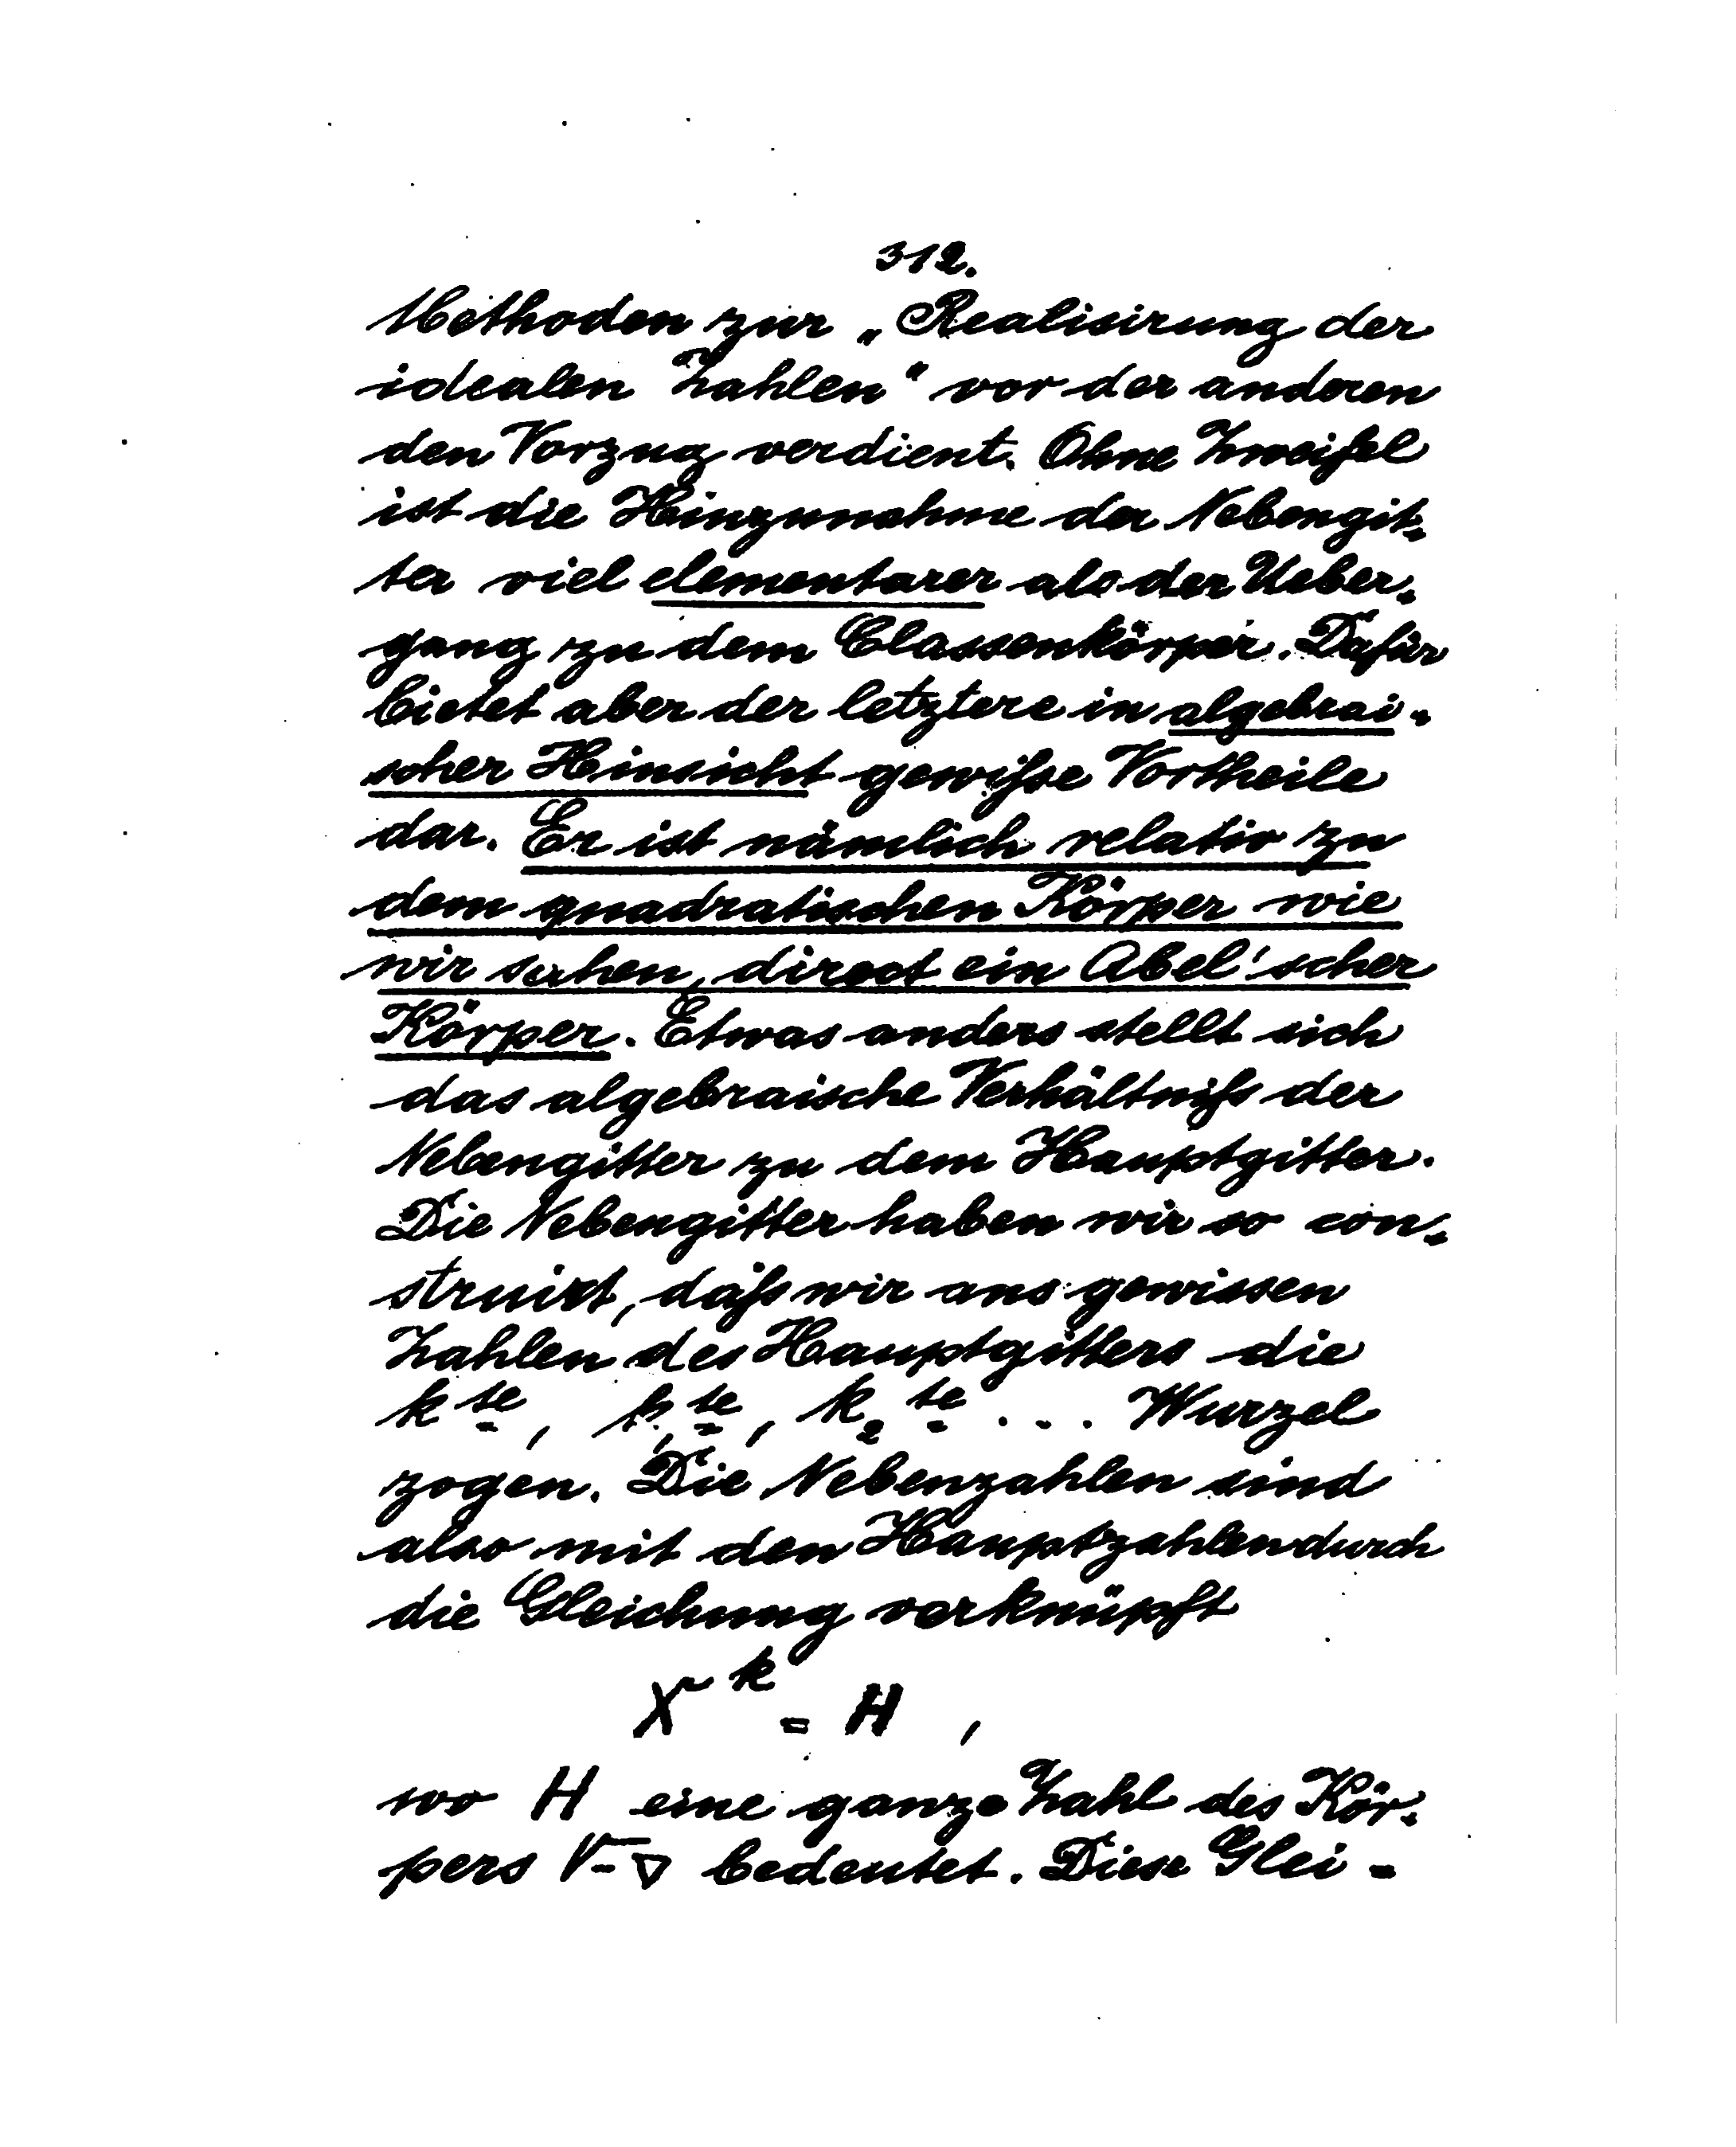 312.
Methoden zur „Realisirung der
idealen Zahlen" vor der anderen
den Vorzug verdient. Ohne Zweifel
ist die Hinzunahme der Nebengit-
ter viel elementarer als der Ueber-
gang zu dem Classenkörper. Dafür
bietet aber der letztere in algebrai-
scher Hinsicht gewiße Vortheile
dar. Er ist nämlich relativ zu
dem quadratischen Körper wie
wir sahen, direct ein Abel'scher
Körper. Etwas anders stellt sich
das algebraische Verhältniß der
Nebengitter zu dem Hauptgitter.
Die Nebengitter haben wir so con-
struirt, daß wir aus gewissen
Zahlen des Hauptgitters die
k te, k₁ te, k₂ te ... Wurzel
zogen. Die Nebenzahlen sind
also mit den Hauptzahlen durch
die Gleichung verknüpft
X^k = H ,
wo H eine ganze Zahl des Kör-
pers √-∇ bedeutet. Diese Glei-